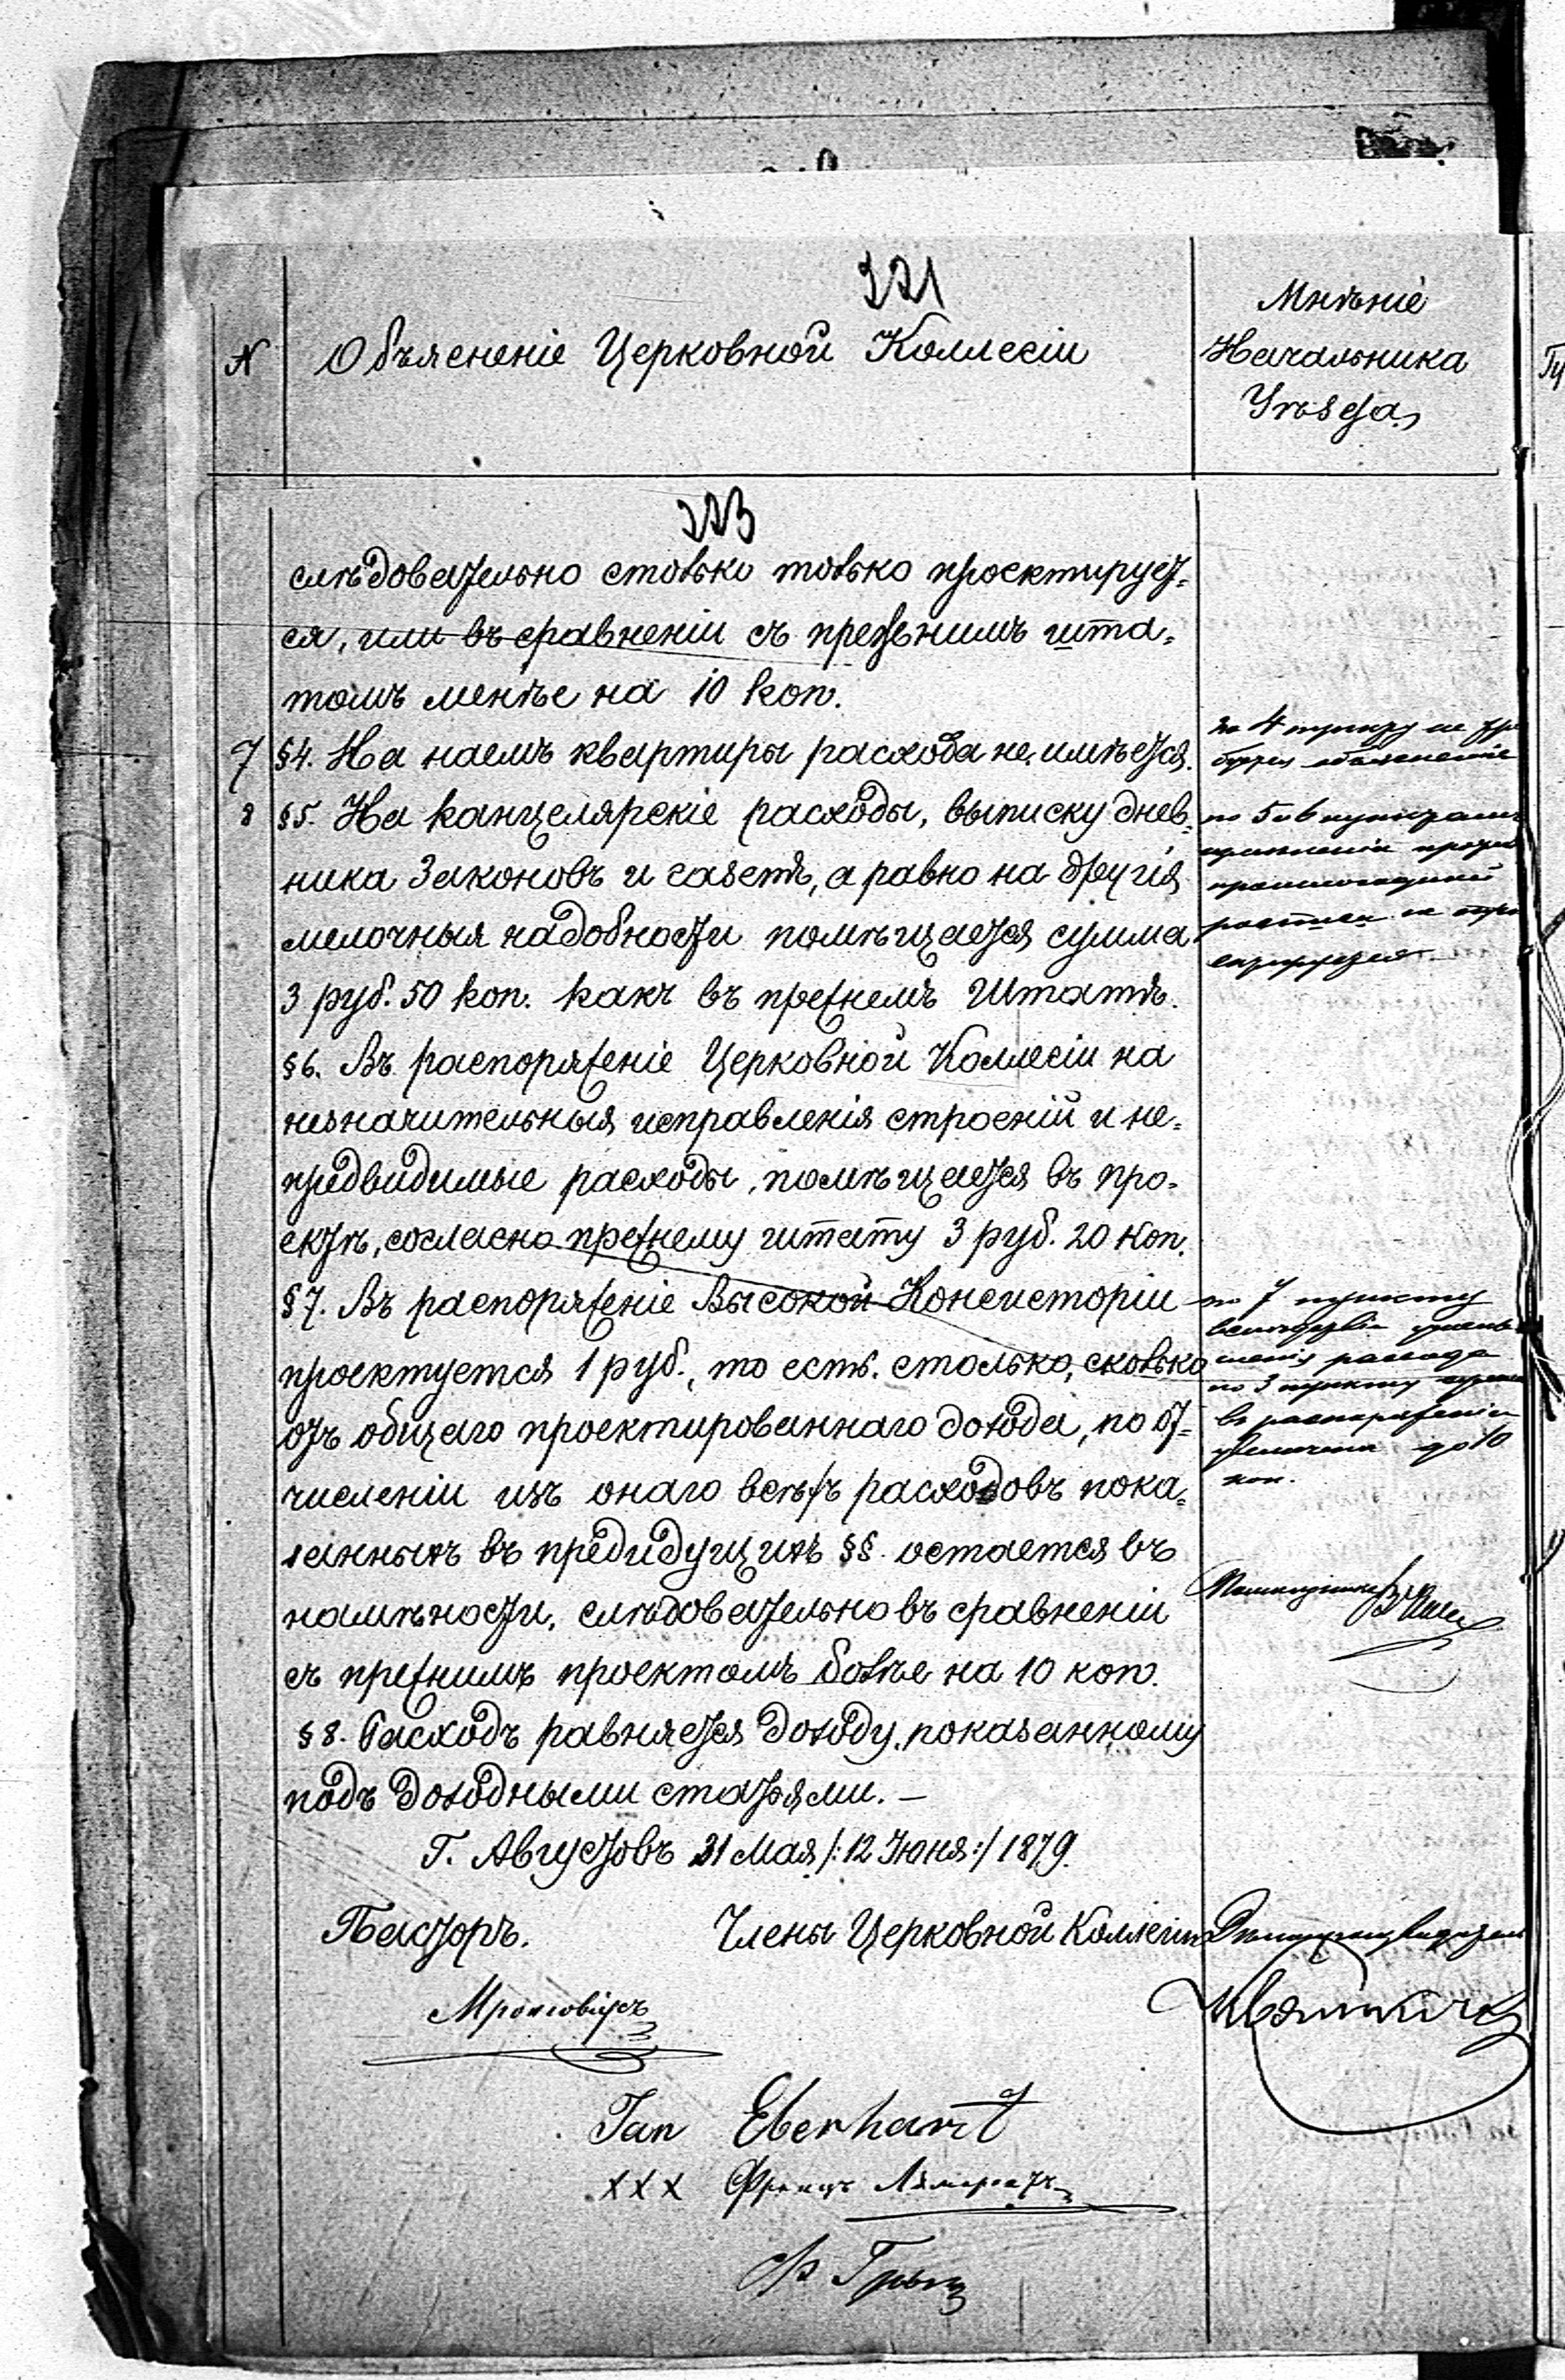 321
N
Объясненіе Церковной Коллегіи
Мнѣніе
Начальника
Уѣзда
323
слѣдовательно столько только проектирует-
ся, или въ сравненіи съ прежнимъ шта-
томъ менѣе на 10 коп.
7 §4. На наемъ квартиры расхода не имѣется.
8 §5. На канцелярскіе расходы, выписку днев-
ника Законовъ и газетъ, а равно на другія
мелочныя надобности помѣщается сумма
3 руб. 50 коп. какъ въ прежнемъ Штатѣ.
§6. Въ распоряженіе Церковной Коллегіи на
незначительныя исправленія строеній и не-
предвидимые расходы, помѣщается въ про-
ектъ, согласно прежнему штату 3 руб. 20 коп.
§7. Въ распоряженіе Высокой Консисторіи
проектуется 1 руб., то есть столько, сколько
отъ общаго проектированнаго дохода, по от-
численіи изъ онаго всѣхъ расходовъ пока-
занныхъ въ предидущихъ §§ остается въ
наличности, слѣдовательно въ сравненіи
съ прежнимъ проектомъ болѣе на 10 коп.
§8. Расходъ равняется доходу, показанному
подъ доходными статьями. –
Г. Августовъ 31 Мая /:12 Іюня:/ 1879.
Пасторъ.
Члены Церковной Коллегіи
Jan Eberhart
XXX Францъ
по 4 пункту не
объясненіе
по 5 и 6 пунктамъ
по 7 пункту
расхода
по 3 пункту
въ распоряженіи
до 10
коп.